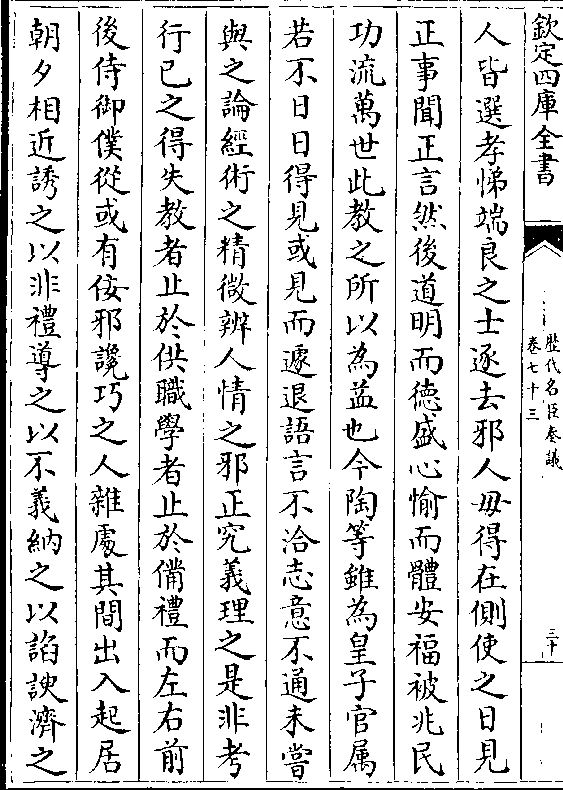 欽定四庫全書
歴代名臣奏議
卷七十三
三十
人皆選孝悌端良之士逐去邪人毋得在側使之日見
正事聞正言然後道明而德盛心愉而體安福被兆民
功流萬世此教之所以為益也今陶等雖為皇子官属
若不日日得見或見而遽退語言不洽志意不通未嘗
與之論經術之精微辨人情之邪正究義理之是非考
行已之得失教者止於供職學者止於備禮而左右前
後侍御僕從或有佞邪讒巧之人雜處其間出入起居
朝夕相近誘之以非禮導之以不義納之以諂諛濟之